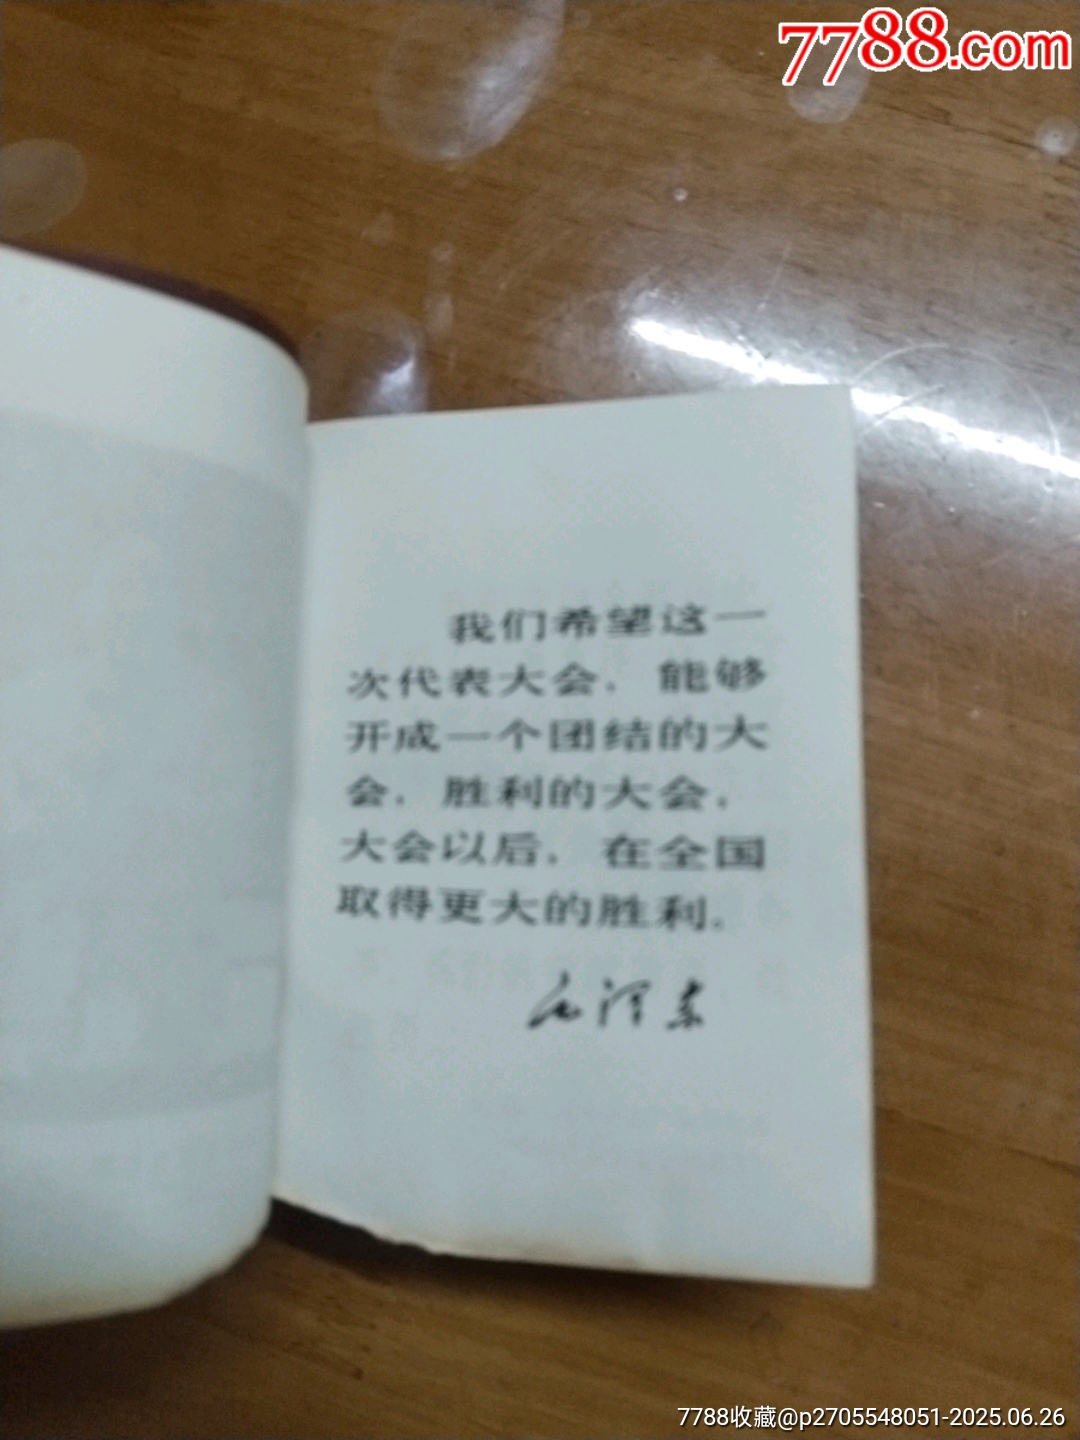 7788.com
我们希望这一
次代表大会，能够
开成一个团结的大
会，胜利的大会，
大会以后，在全国
取得更大的胜利。
毛泽东
7788收藏@p2705548051-2025.06.26